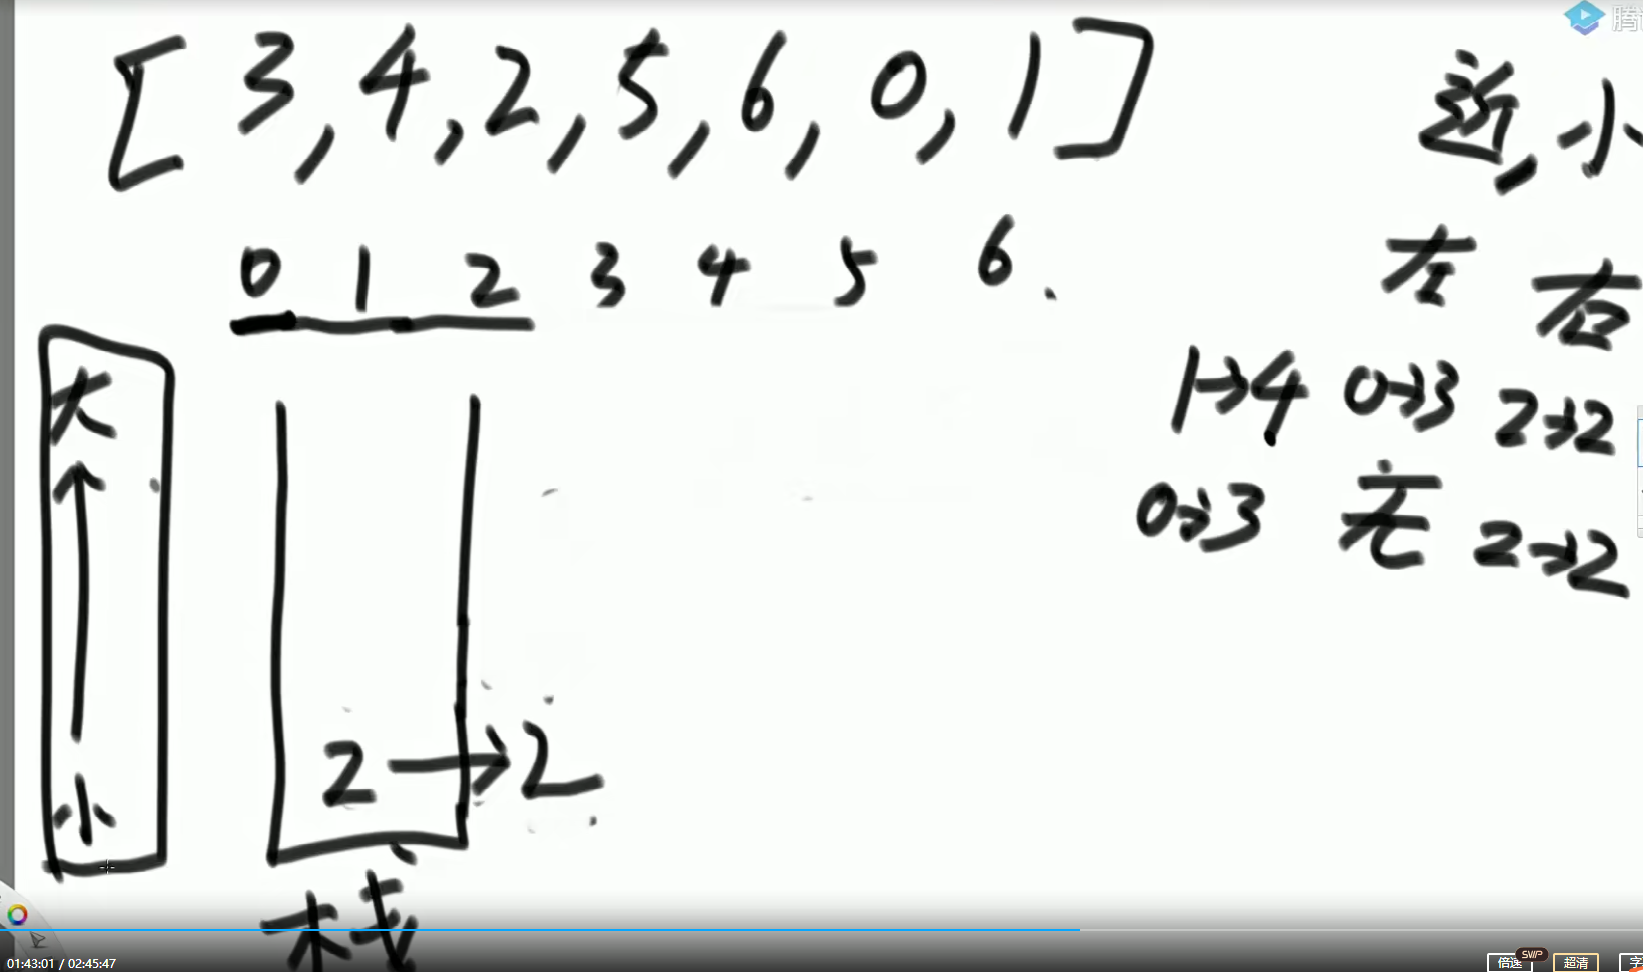 [3,4,2,5,6,0,1]
近,小
0 1 2 3 4 5 6
左 右
1→4 0→3 2→2
0→3 无 2→2
大
小
2→2
栈
01:43:01 / 02:45:47
SVIP
倍速 超清 字
腾